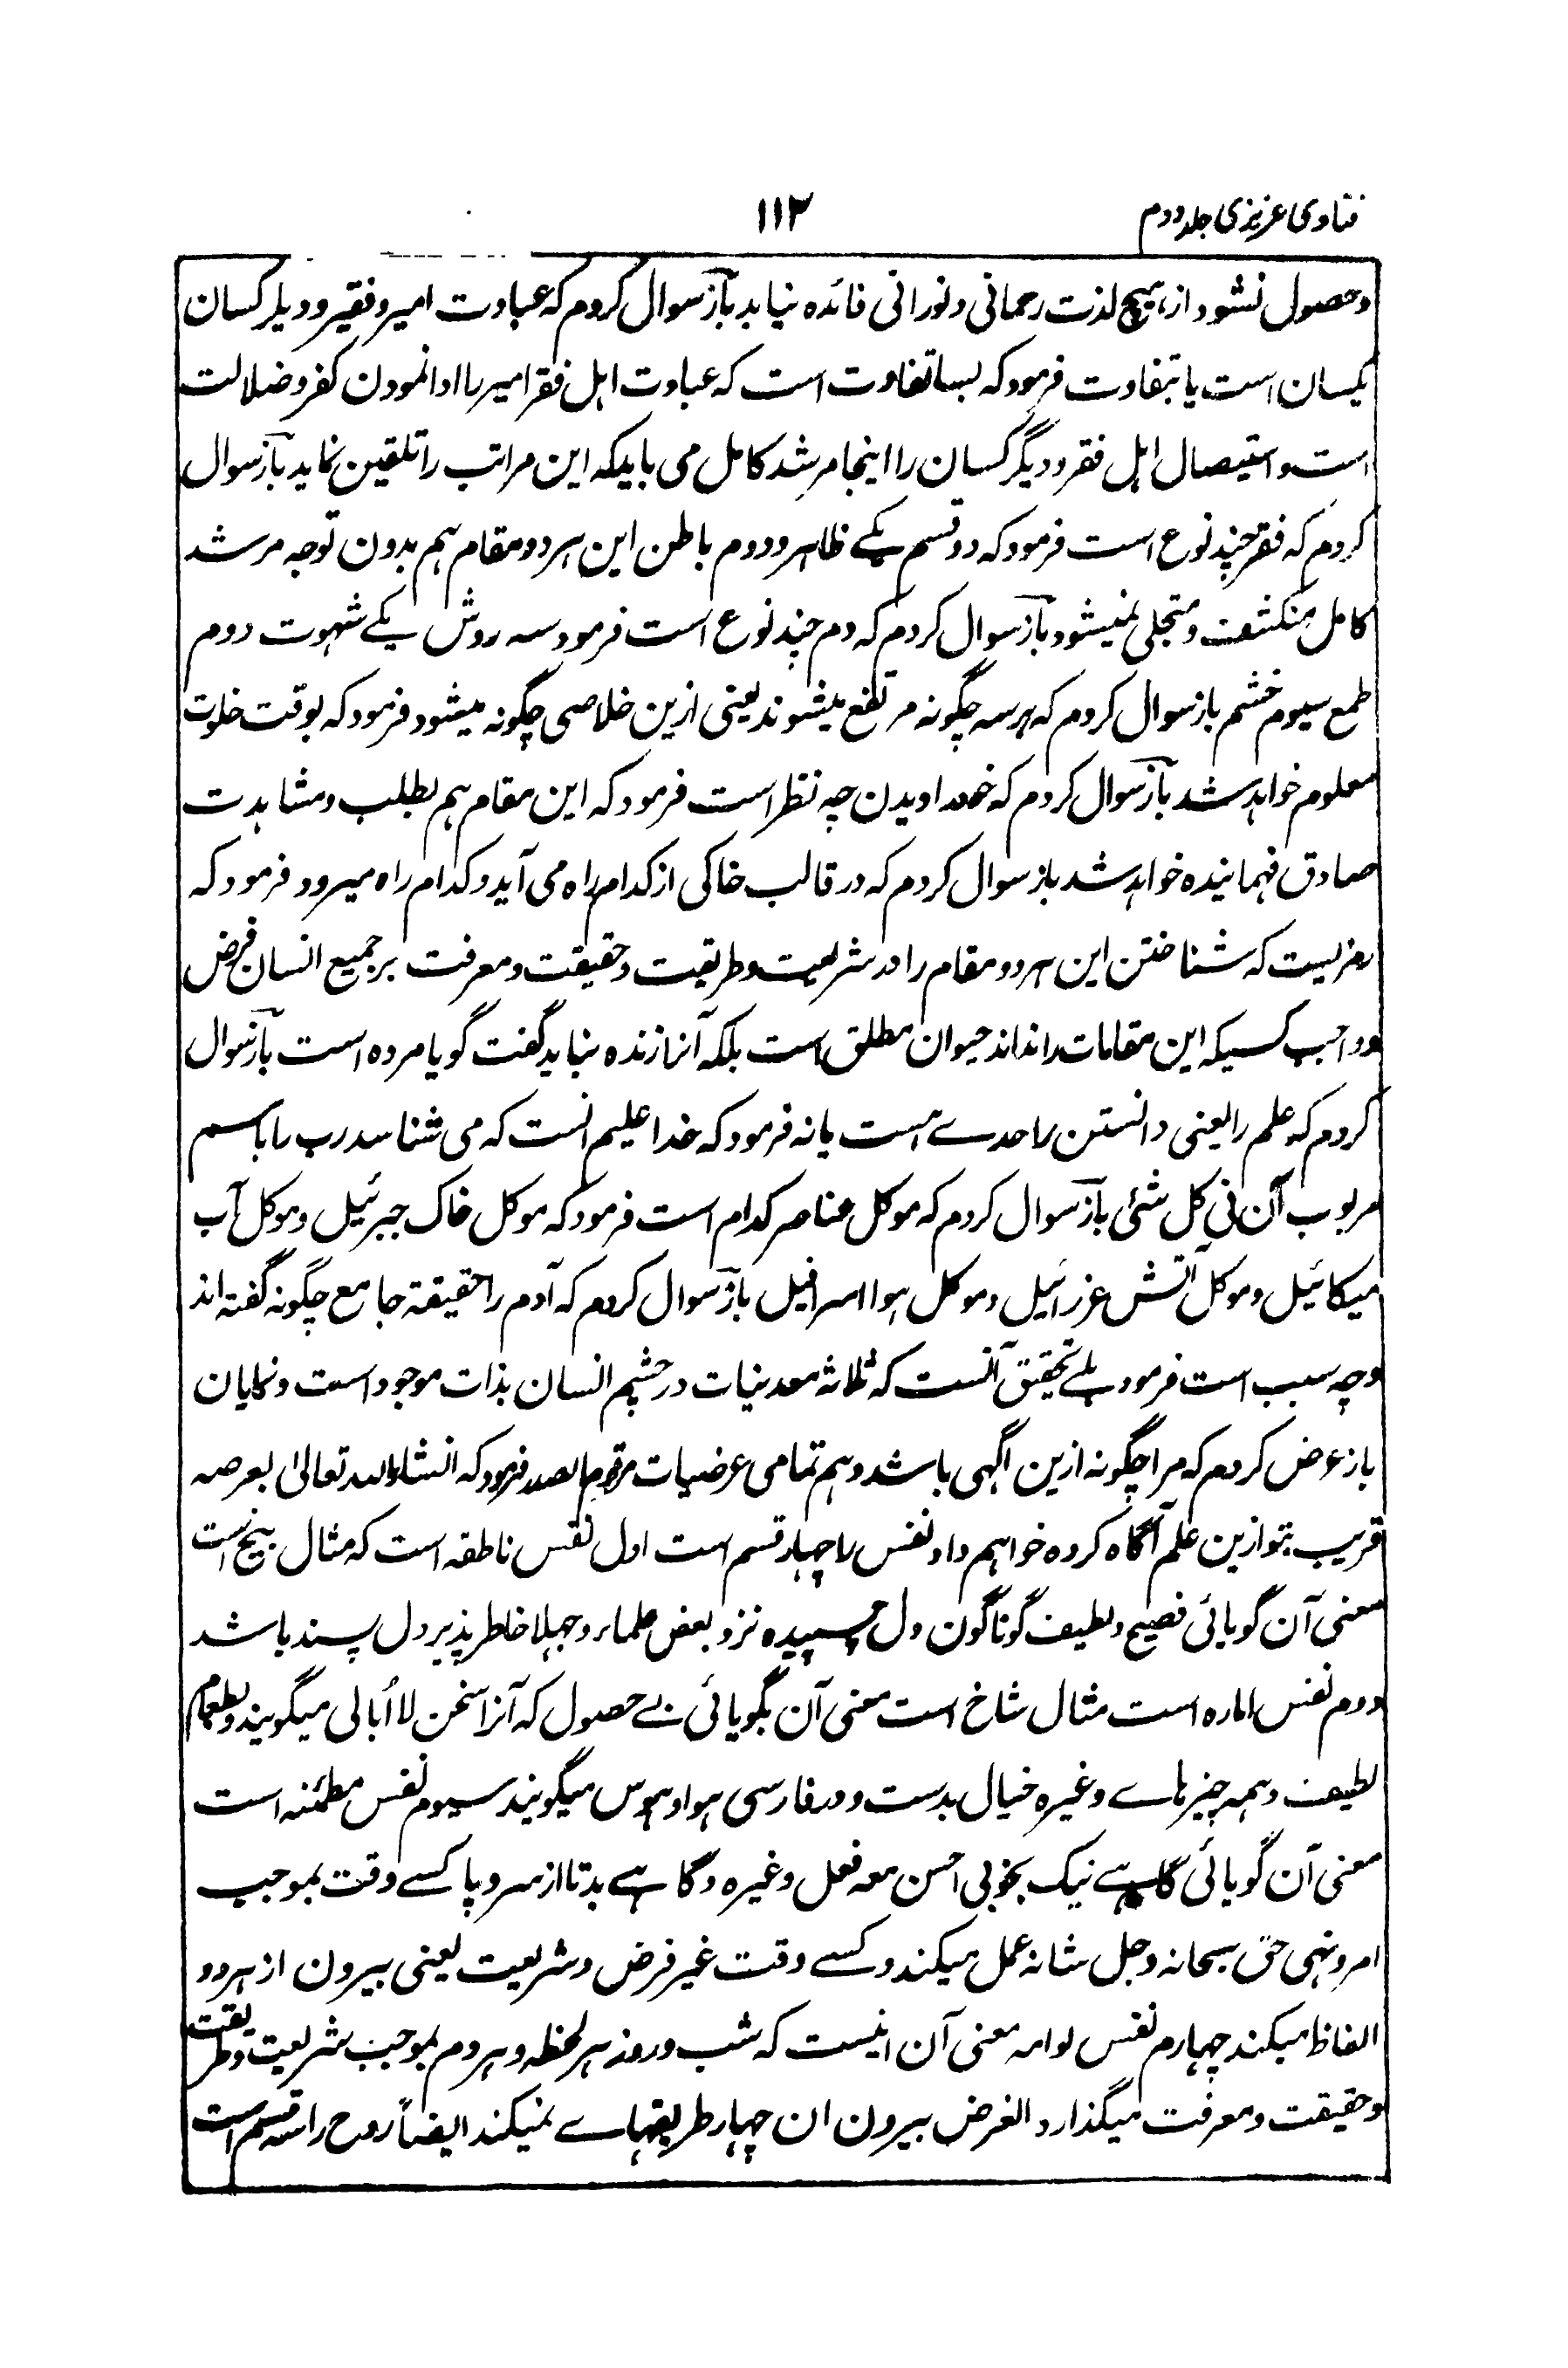 فتاوی عزیزی جلد دوم
۱۱۲
وحصول نشود از ہیچ لذت رحمانی ونورانی فائدہ نیابد باز سوال کردم کہ عبادت امیر وفقیر ودیگر کسان
یکسان است یا تبفاوت فرمود کہ بسیا تفاوت است کہ عبادت اہل فقر امیر را ادا نمودن کفر وضلالت
است واستیصال اہل فقر ودیگر کسان را اینجا مرشد کامل می باید کہ این مراتب را تلقین نماید باز سوال
کردم کہ فقر چند نوع است فرمود کہ دو قسم یکے ظاہر ودوم باطن این ہر دو مقام ہم بدون توجہ مرشد
کامل منکشف ومتجلی نمیشود باز سوال کردم کہ دم چند نوع است فرمود سہ روش یکے شہوت دوم
طمع سیوم خشم باز سوال کردم کہ ہر سہ چگونہ مرتفع میشوند یعنی ازین خلاصی چگونہ میشود فرمود کہ بوقت خلوت
معلوم خواہد شد باز سوال کردم کہ خدا دیدن چہ نظر است فرمود کہ این مقام ہم بطلب ومشاہدت
صادق فہمانیدہ خواہد شد باز سوال کردم کہ در قالب خاکی از کدام راہ می آید وکدام راہ میرود فرمود کہ
رمزیست کہ شناختن این ہر دو مقام را در شریعت وطریقت وحقیقت ومعرفت بر جمیع انسان فرض
وواجب کسیکہ این مقامات را نداند حیوان مطلق است بلکہ آنرا زندہ نباید گفت گویا مردہ است باز سوال
کردم کہ علم را یعنی دانستن را حدے ہست یا نہ فرمود کہ خدا علیم انست کہ می شناسد رب را باسم
مربوب آن فی کل شئی باز سوال کردم کہ موکل عناصر کدام است فرمود کہ موکل خاک جبرئیل وموکل آب
میکائیل وموکل آتش عزرائیل وموکل ہوا اسرافیل باز سوال کردم کہ آدم را حقیقۃ جامع چگونہ گفتہ اند
وچہ سبب است فرمود بلے تحقیق آنست کہ ثلاثہ معدنیات در چشم انسان بذات موجود است ونمایان
باز عرض کردم کہ مرا چگونہ ازین اگہی باشد وہم تمامی عرضیات مرقوم الصدر فرمود کہ انشاء اللہ تعالیٰ بعرصہ
قریب بتو ازین علم آگاہ کردہ خواہم داد نفس را چہار قسم است اول نفس ناطقہ است کہ مثال بیخ است
معنی آن گویائی فصیح ولطیف گوناگون دل چسپیدہ نزد بعض علماء وجہلا خاطر پذیر دل پسند باشد
دوم نفس امارہ است مثال شاخ است معنی آن بگویائی بے حصول کہ آنرا سخن لا أبالی میگویند وبطعام
لطیف وہمہ چیزہاے وغیرہ خیال بدست ودر فارسی ہوا وہوس میگویند سیوم نفس مطمئنہ است
معنی آن گویائی گاہے نیک بخوبی احسن معہ فعل وغیرہ وگاہے بدتا از سر وپا کسے وقت بموجب
امر ونہی حق سبحانہ وجل شانہ عمل میکند وکسے وقت غیر فرض وشریعت یعنی بیرون از ہر دو
الفاظ میکند چہارم نفس لوامہ معنی آن اینست کہ شب وروز ہر لحظہ وہر دم بموجب شریعت وطریقت
وحقیقت ومعرفت میگذارد الغرض بیرون ان چہار طریقہاے نمیکند ایضاً روح را سہ قسم است